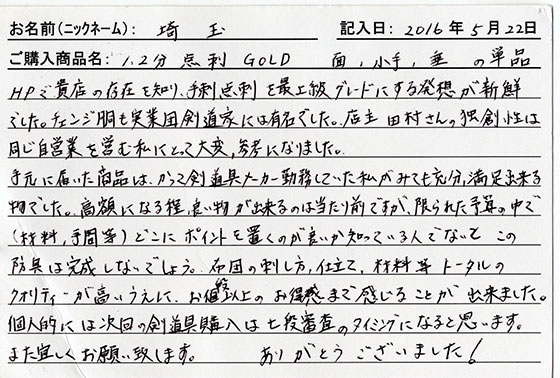 お名前(ニックネーム): 埼玉 記入日: 2016年5月22日
ご購入商品名: 1.2分 点刺 GOLD 面,小手,垂 の単品
HPで貴店の存在を知り、手刺点刺を最上級グレードにする発想が新鮮
でした。チェンジ胴も実業団剣道家には有名でした。店主 田村さんの独創性は
同じ自営業を営む私にとって大変,参考になりました。
手元に届いた商品は、かつて剣道具メーカー勤務していた私がみても充分,満足出来る
物でした。高額になる程,良い物が出来るのは当たり前ですが、限られた予算の中で
(材料,手間等)どこにポイントを置くのが良いか知っている人でないと この
防具は完成しないでしょう。布団の刺し方,仕立て,材料等 トータルの
クオリティーが高いうえに、お値段以上のお得感まで感じることが出来ました。
個人的には次回の剣道具購入は七段審査のタイミングになると思います。
また宜しくお願い致します。 ありがとうございました!